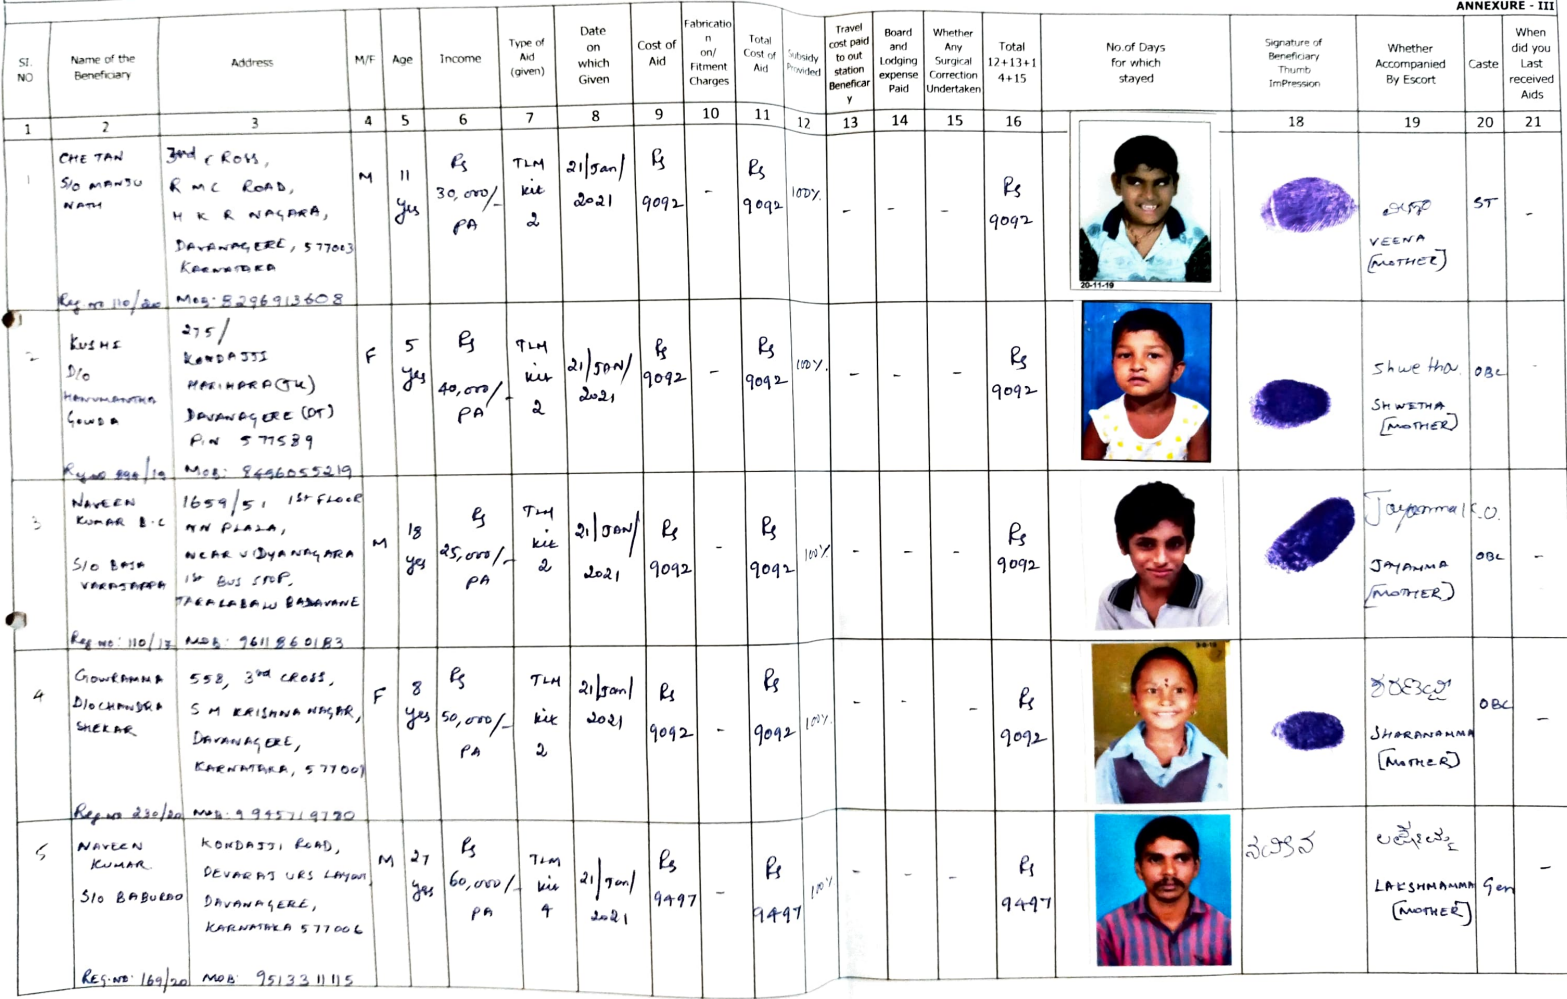 ANNEXURE - III
SI. NO
Name of the Beneficiary
Address
M/F
Age
Income
Type of Aid (given)
Date on which Given
Cost of Aid
Fabrication on/ Fitment Charges
Total Cost of Aid
Subsidy Provided
Travel cost paid to out station Beneficary
Board and Lodging expense Paid
Whether Any Surgical Correction Undertaken
Total 12+13+14+15
No.of Days for which stayed
Signature of Beneficiary Thumb ImPression
Whether Accompanied By Escort
Caste
When did you Last received Aids
1 2 3 4 5 6 7 8 9 10 11 12 13 14 15 16 18 19 20 21
1
CHETAN
S/O MANJU
NATH
Reg no 110/20
3rd CROSS,
R M C ROAD,
H K R NAGARA,
DAVANAGERE, 577003
KARNATAKA
MOB: 8296913608
M
11 yes
Rs 30,000/- PA
TLM kit 2
21/Jan/ 2021
Rs 9092
-
Rs 9092
100%
-
-
-
Rs 9092
20-11-19
VEENA
[MOTHER]
ST
-
2
KUSHI
D/O
HANUMANTHA
GOWDA
275/
KONDAJJI
HARIHARA (TK)
DAVANAGERE (DT)
PIN 577589
MOB: 8496055219
F
5 yes
Rs 40,000/- PA
TLM kit 2
21/JAN/ 2021
Rs 9092
-
Rs 9092
100%
-
-
-
Rs 9092
Shwetha
SHWETHA
[MOTHER]
OBC
-
3
NAVEEN
KUMAR B.C
S/O BASA
VARAJAPPA
Reg no: 110/17
1659/51 1st FLOOR
NN PLAZA,
NEAR VIDYANAGARA
1st BUS STOP,
TARALABALU BADAVANE
MOB: 9611860183
M
18 yes
Rs 25,000/- PA
TLM kit 2
21/JAN/ 2021
Rs 9092
-
Rs 9092
100%
-
-
-
Rs 9092
Jayamma K.O.
JAYAMMA
[MOTHER]
OBC
-
4
GOWRAMMA
D/O CHANDRA
SHEKAR
Reg no 230/20
558, 3rd CROSS,
S M KRISHNA NAGAR,
DAVANAGERE,
KARNATAKA, 577001
MOB: 9945719780
F
8 yes
Rs 50,000/- PA
TLM kit 2
21/Jan/ 2021
Rs 9092
-
Rs 9092
100%
-
-
-
Rs 9092
SHARANAMMA
[MOTHER]
OBC
-
5
NAVEEN
KUMAR
S/O BABURAO
REG.NO: 169/20
KONDAJJI ROAD,
DEVARAJ URS LAYOUT,
DAVANAGERE,
KARNATAKA 577006
MOB: 9513311115
M
27 yes
Rs 60,000/- PA
TLM kit 4
21/Jan/ 2021
Rs 9497
-
Rs 9497
100%
-
-
-
Rs 9497
ನವೀನ
LAKSHMAMMA
[MOTHER]
Gen
-